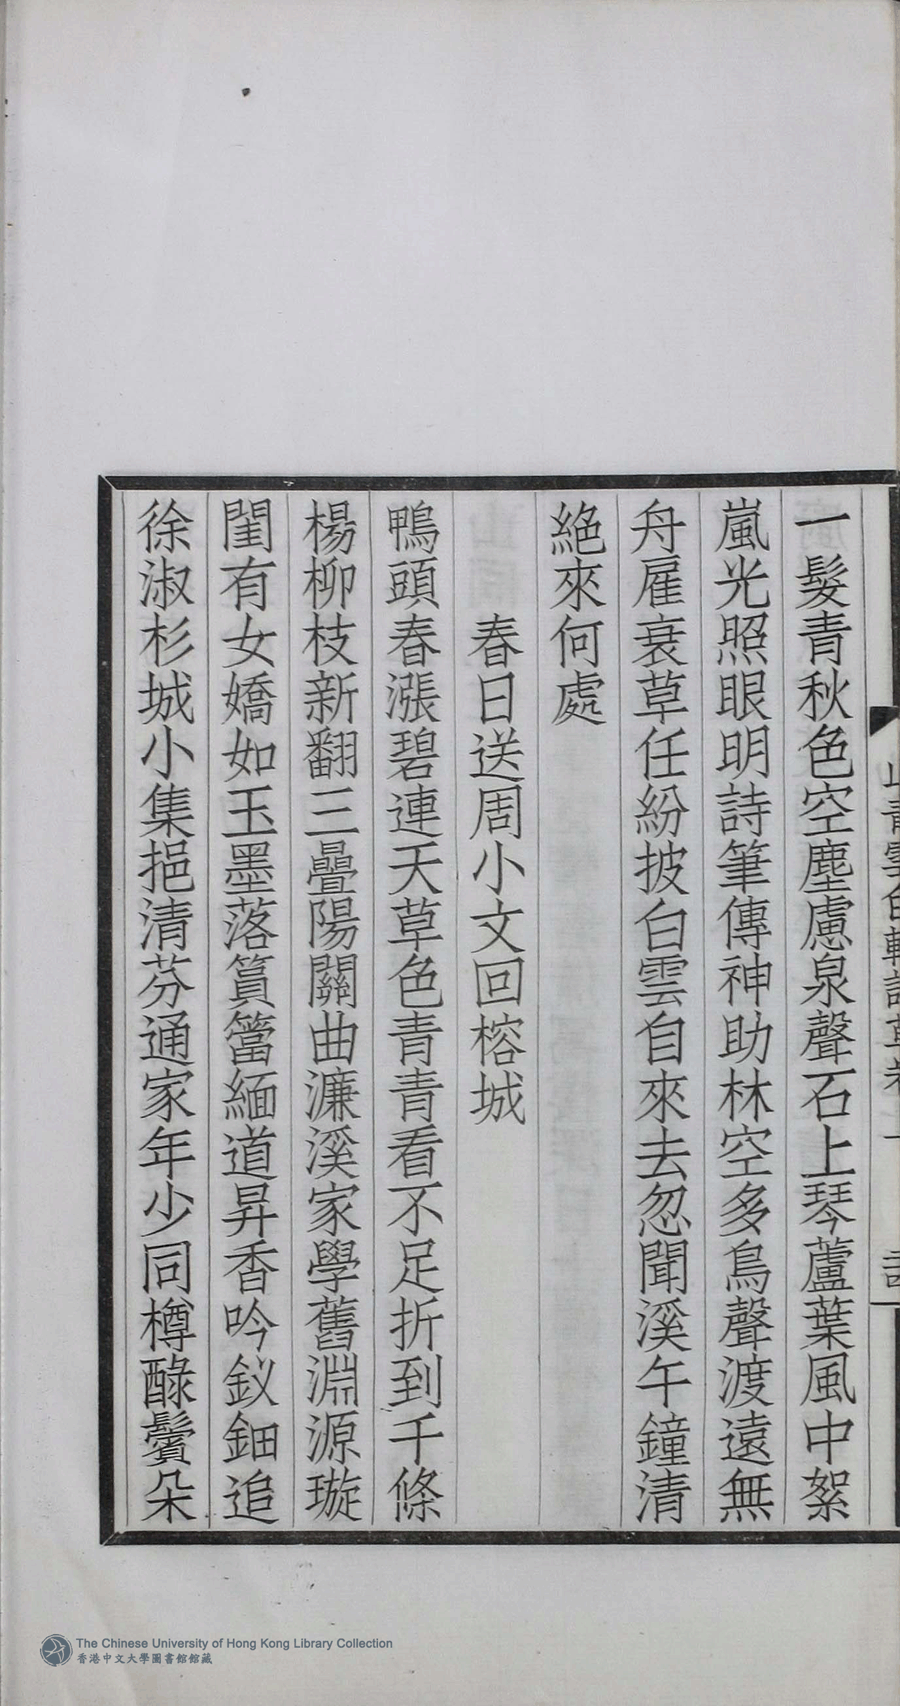 一髮青秋色空塵慮泉聲石上琴蘆葉風中絮
嵐光照眼明詩筆傳神助林空多鳥聲渡遠無
舟雇衰草任紛披白雲自來去忽聞溪午鐘清
絕來何處
春日送周小文回榕城
鴨頭春漲碧連天草色青青看不足折到千條
楊柳枝新翻三疊陽關曲濂溪家學舊淵源璇
閨有女嬌如玉墨落篔簹緬道昇香吟釵鈿追
徐淑杉城小集挹清芬通家年少同樽醁鬢朵
The Chinese University of Hong Kong Library Collection
香港中文大學圖書館館藏